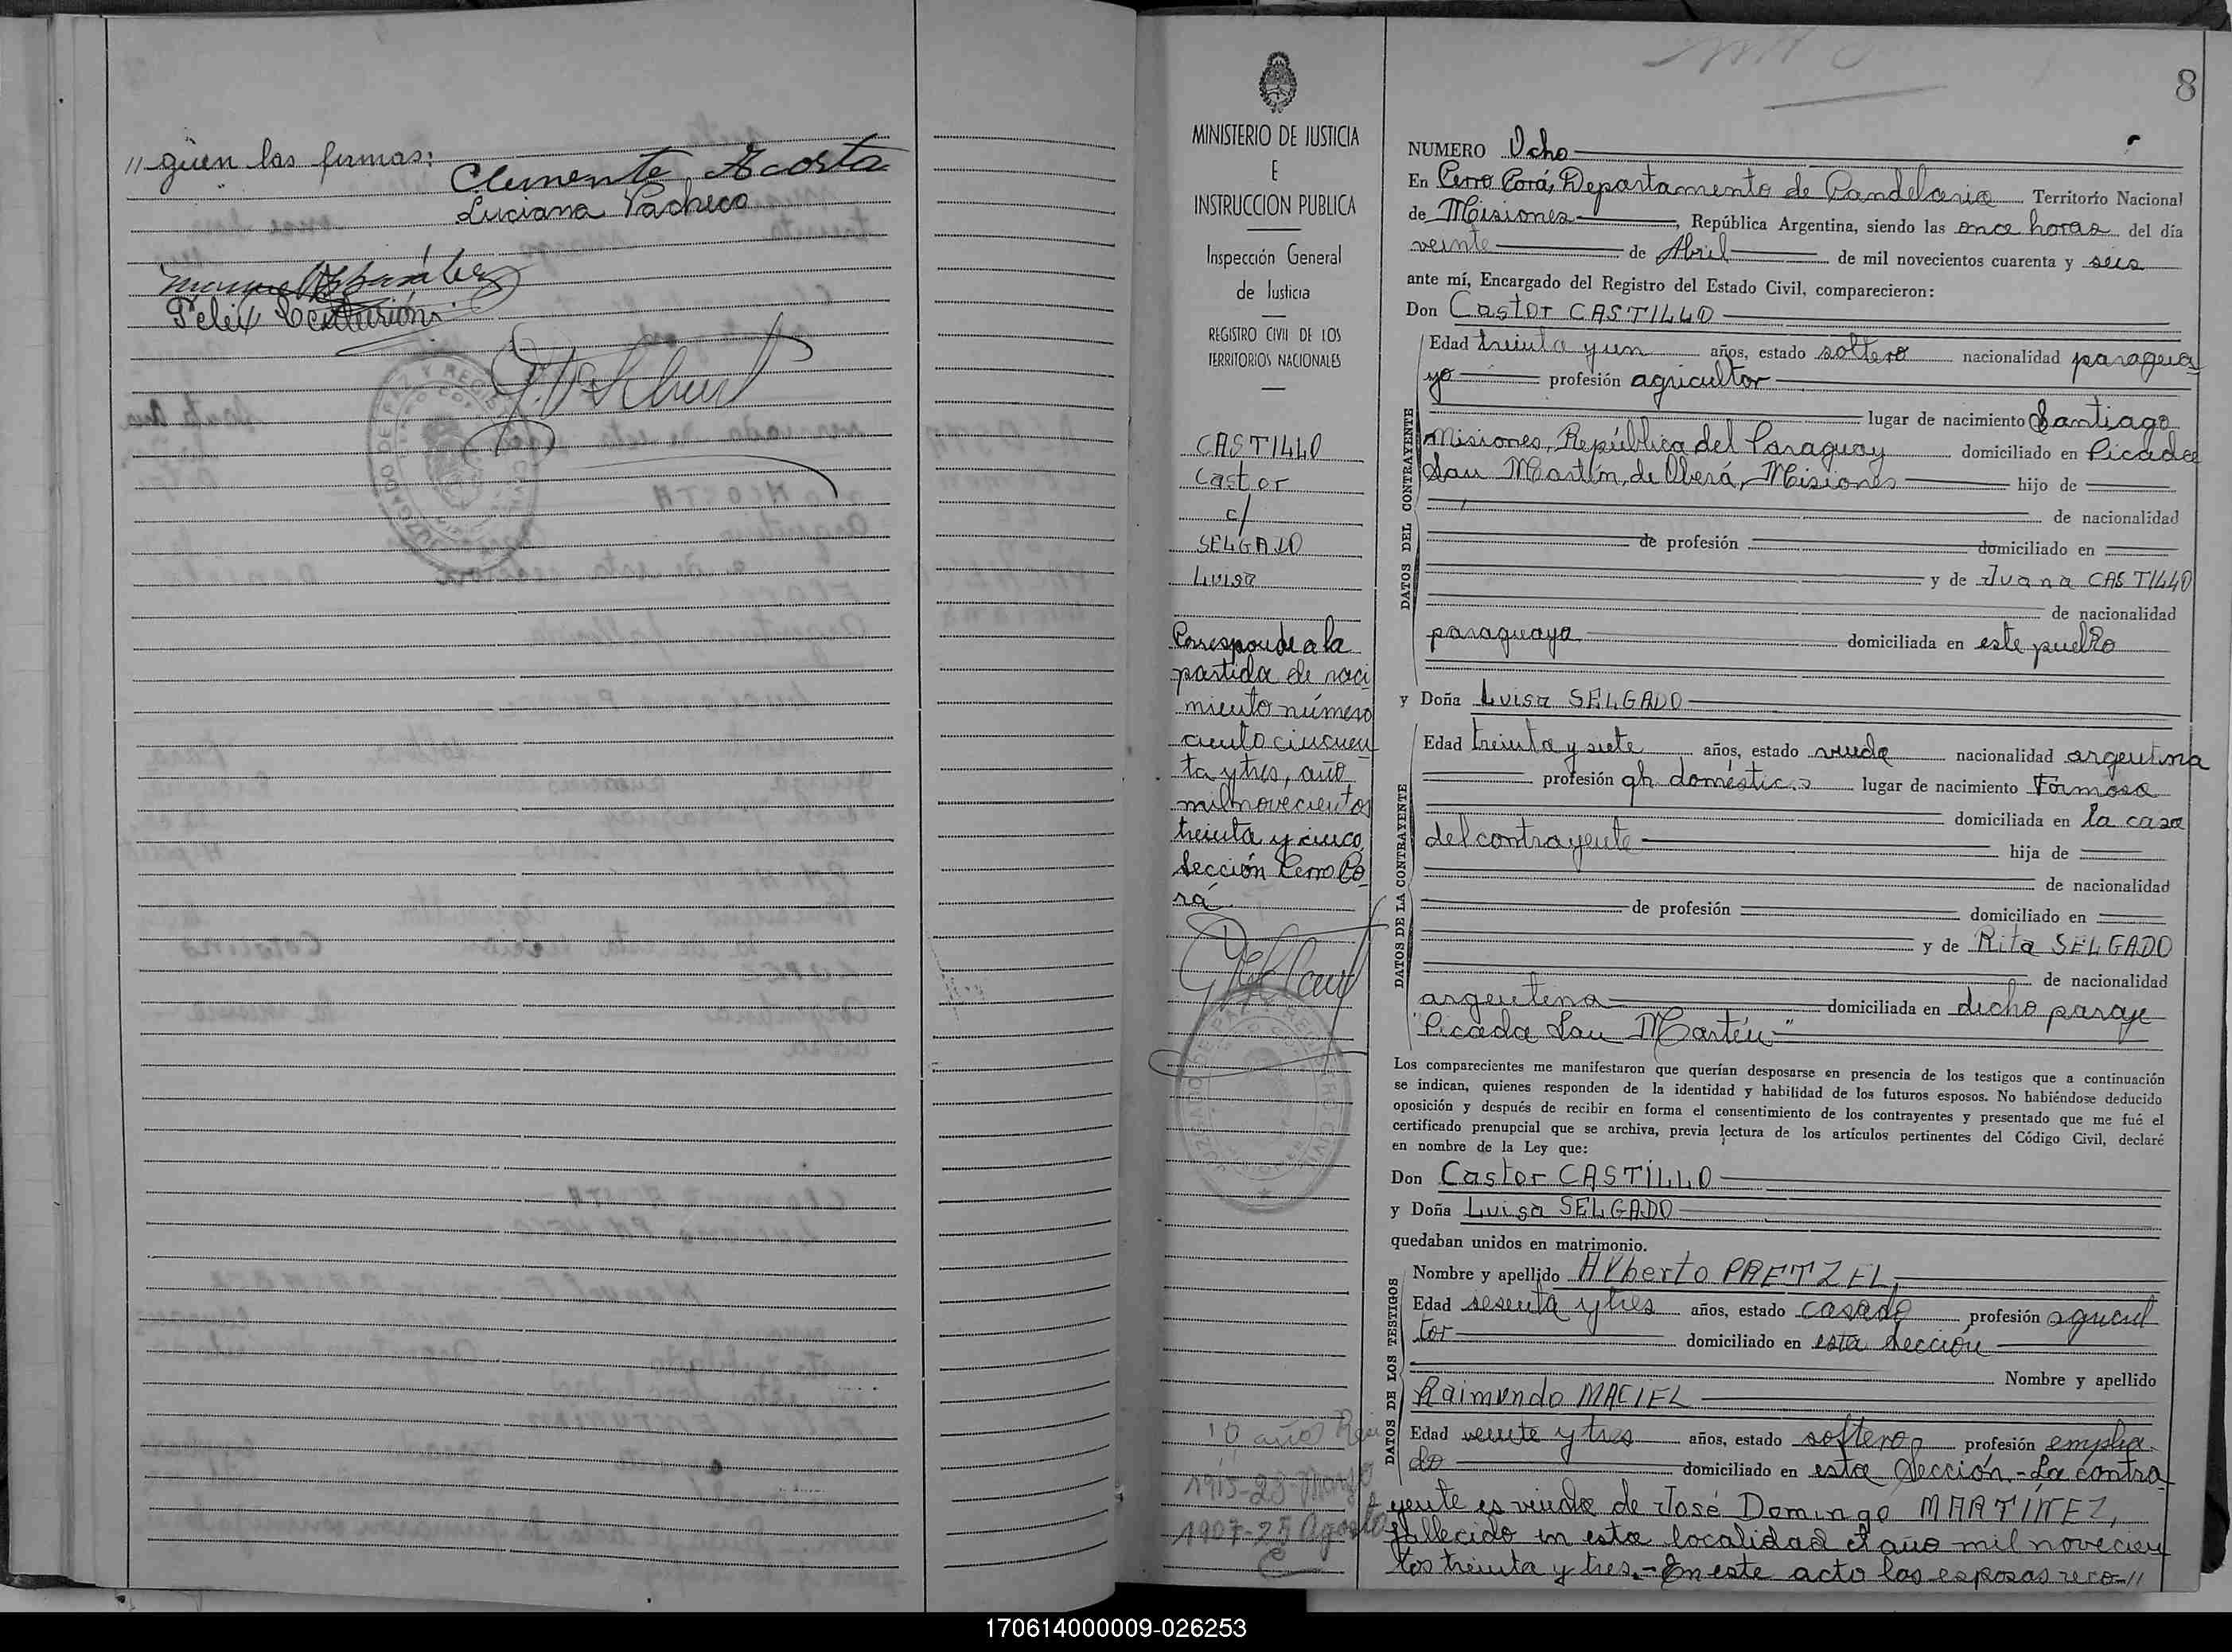 // guen las firmas:
Clemente Acosta
Luciana Pacheco
Felix Centurión
MINISTERIO DE JUSTICIA
E
INSTRUCCION PUBLICA
Inspección General
de Justicia
REGISTRO CIVIL DE LOS
TERRITORIOS NACIONALES
CASTILLO
Castor
c/
SELGADO
Luisa
Corresponde a la
partida de naci
miento número
ciento cincuen
ta y tres, año
mil novecientos
treinta y cinco,
Sección Cerro Co-
rá
10 años
1915-23-Marzo
1907-25 Agosto
8
NUMERO Ocho
En Cerro Corá, Departamento de Candelaria Territorio Nacional
de Misiones, República Argentina, siendo las once horas del día
veinte de Abril de mil novecientos cuarenta y seis
ante mí, Encargado del Registro del Estado Civil, comparecieron:
Don Castor CASTILLO
DATOS DEL CONTRAYENTE
Edad treinta y un años, estado soltero nacionalidad paragua-
yo profesión agricultor
lugar de nacimiento Santiago
Misiones, República del Paraguay domiciliado en Picada
San Martín, de Oberá, Misiones hijo de
de nacionalidad
de profesión domiciliado en
y de Juana CASTILLO
de nacionalidad
paraguaya domiciliada en este pueblo
y Doña Luisa SELGADO
DATOS DE LA CONTRAYENTE
Edad treinta y siete años, estado viuda nacionalidad argentina
profesión qh. domésticos lugar de nacimiento Formosa
domiciliada en la casa
del contrayente hija de
de nacionalidad
de profesión domiciliado en
y de Rita SELGADO
de nacionalidad
argentina domiciliada en dicho paraje
"Picada San Martín"
Los comparecientes me manifestaron que querían desposarse en presencia de los testigos que a continuación
se indican, quienes responden de la identidad y habilidad de los futuros esposos. No habiéndose deducido
oposición y después de recibir en forma el consentimiento de los contrayentes y presentado que me fué el
certificado prenupcial que se archiva, previa lectura de los artículos pertinentes del Código Civil, declaré
en nombre de la Ley que:
Don Castor CASTILLO
y Doña Luisa SELGADO
quedaban unidos en matrimonio.
DATOS DE LOS TESTIGOS
Nombre y apellido Alberto PRETZEL,
Edad sesenta y tres años, estado casado profesión agricul
tor domiciliado en esta Sección
Nombre y apellido
Raimundo MACIEL
Edad veinte y tres años, estado soltero profesión emplea-
do domiciliado en esta Sección.- La contra-
yente es viuda de José Domingo MARTINEZ,
fallecido en esta localidad el año mil novecien
tos treinta y tres.- En este acto los esposos reco-//
170614000009-026253